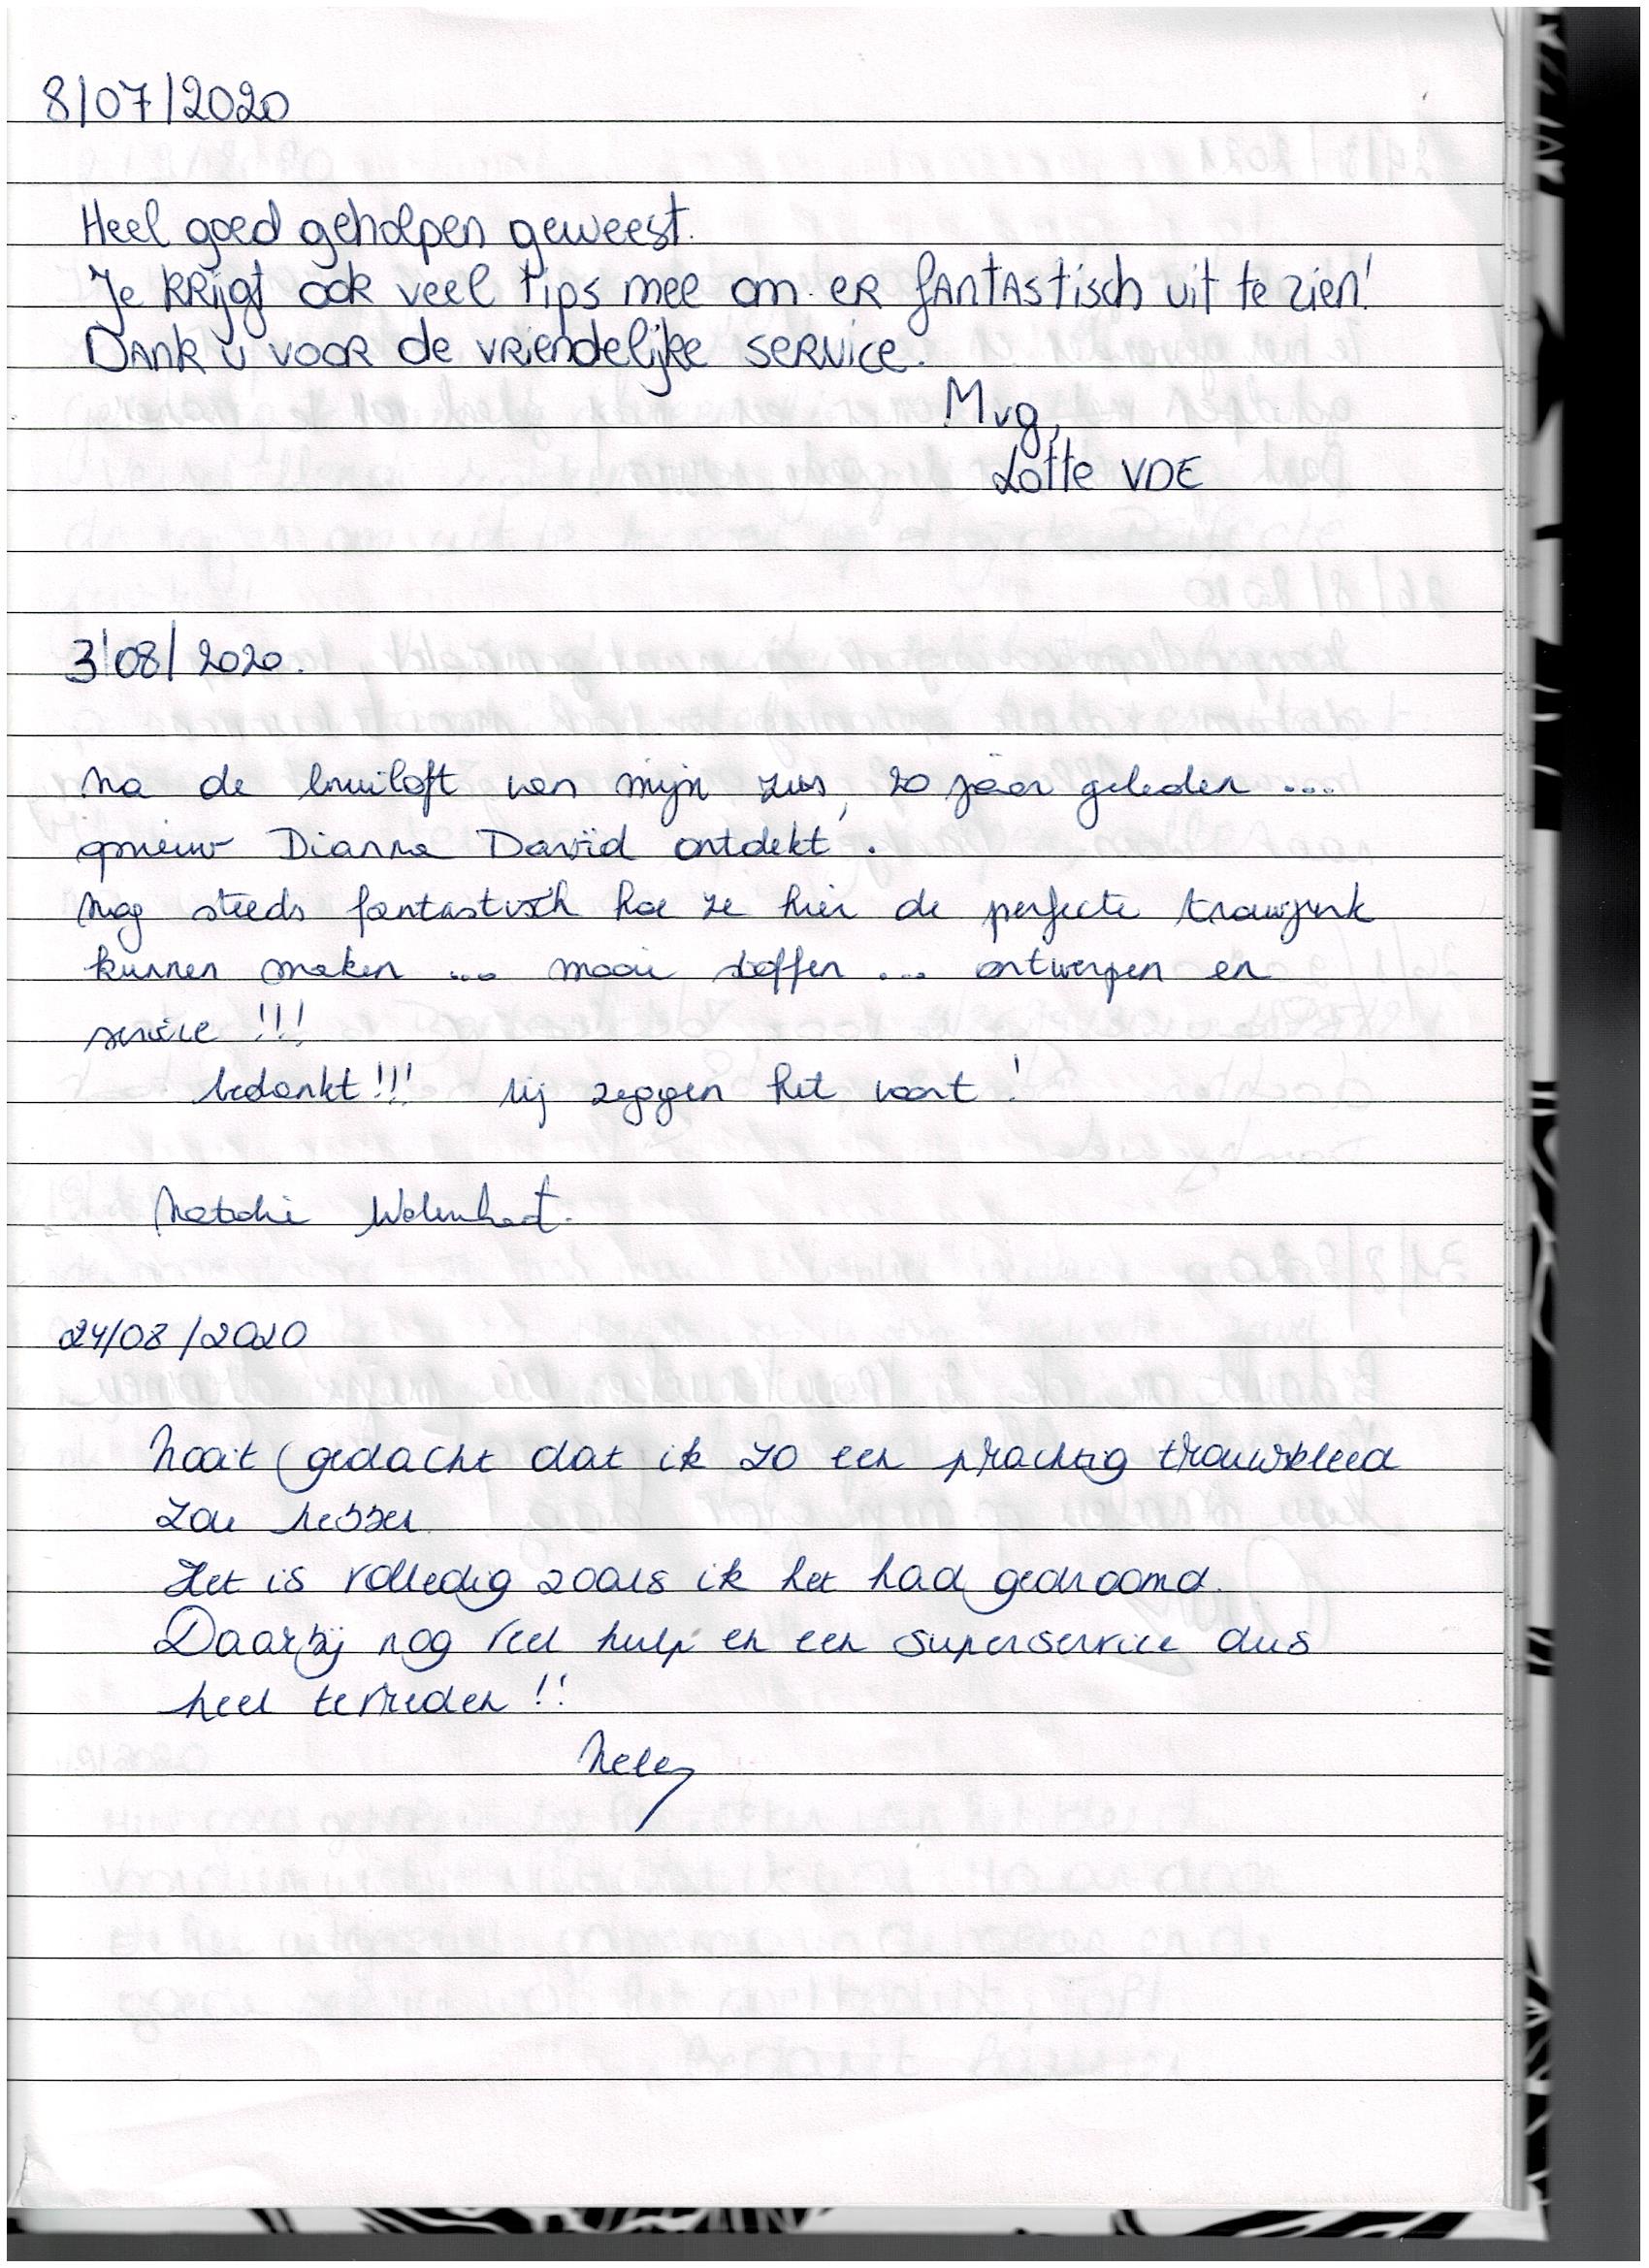 8/07/2020
Heel goed geholpen geweest.
Je krijgt ook veel tips mee om er fantastisch uit te zien!
Dank u voor de vriendelijke service.
Mvg,
Lotte VDE
3/08/2020.
Na de bruiloft van mijn zus, 20 jaar geleden ...
opnieuw Dianna David ontdekt.
Nog steeds fantastisch hoe ze hier de perfecte trouwjurk
kunnen maken ... mooie stoffen ... ontwerpen en
service !!!
bedankt!!! Wij zeggen het voort!
Natalie
24/08/2020
Nooit gedacht dat ik zo een prachtig trouwkleed
zou hebben
Het is volledig zoals ik het had gedroomd.
Daarbij nog veel hulp en een superservice dus
heel tevreden !!
Nele